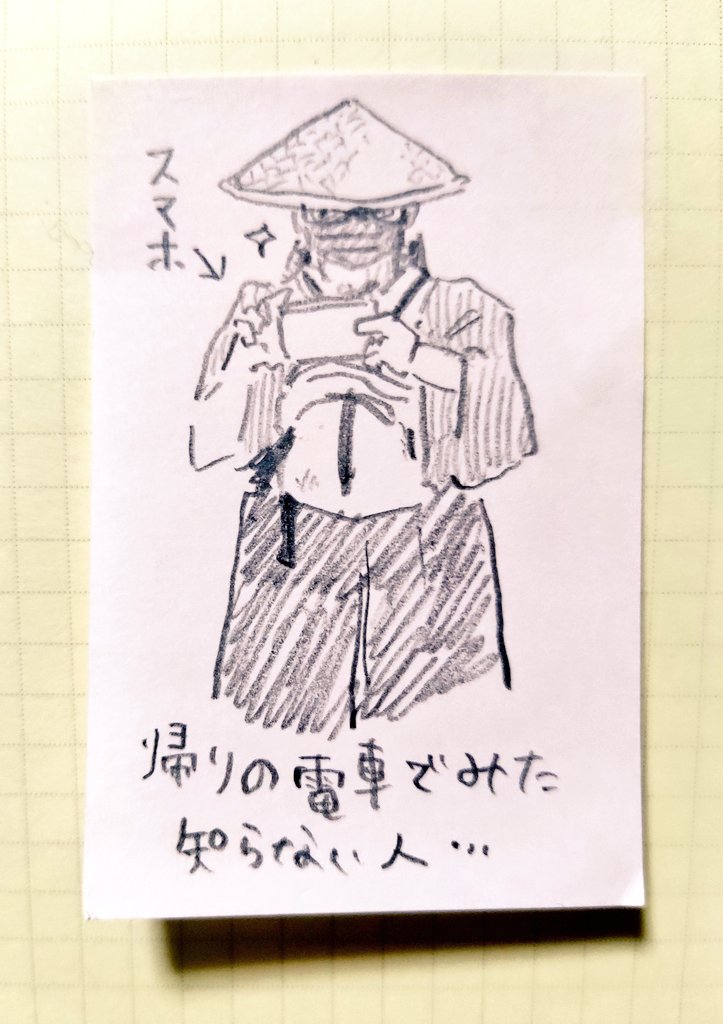 スマホ
帰りの電車でみた
知らない人…